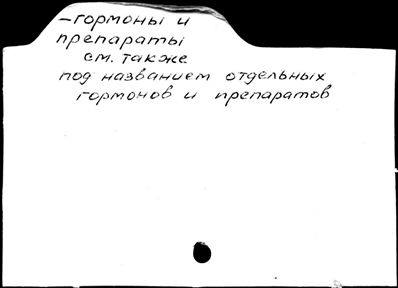 -гормоны и
препараты
см. также
под названием отдельных
гормонов и препаратов